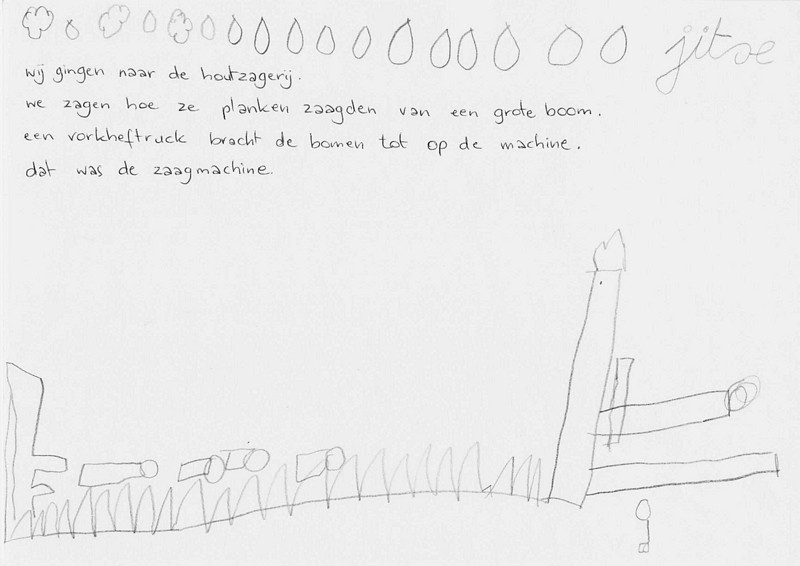 jitse
wij gingen naar de houtzagerij.
we zagen hoe ze planken zaagden van een grote boom.
een vorkheftruck bracht de bomen tot op de machine.
dat was de zaagmachine.